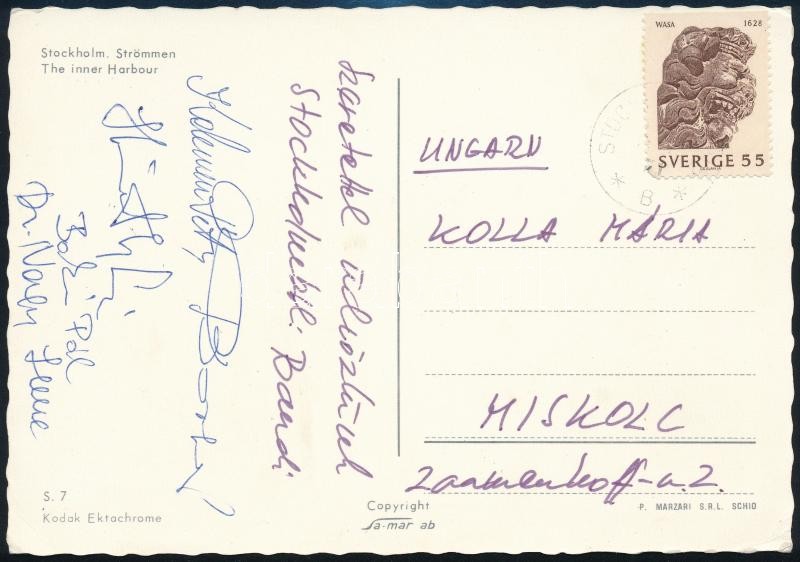 Stockholm. Strömmen
The inner Harbour
Szeretettel üdvözlünk
Stockholmból: Bandi
Bálint Pál
Dr. Nagy Imre
S. 7
Kodak Ektachrome
Copyright
sa-mar ab
WASA 1628
SVERIGE 55
STOC
* B *
UNGARN
KOLLA MÁRIA
MISKOLC
Zaamenhoff-u.2.
P. MARZARI S.R.L. SCHIO